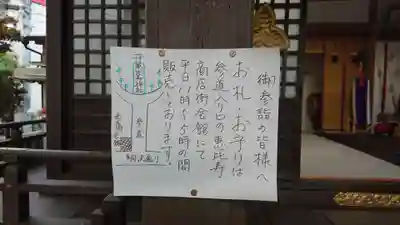 御参詣の皆様へ
お札・お守りは
参道入り口の恵比寿
商店街会館にて
平日11時〜5時の間
販売しております。
参道
駒沢通り